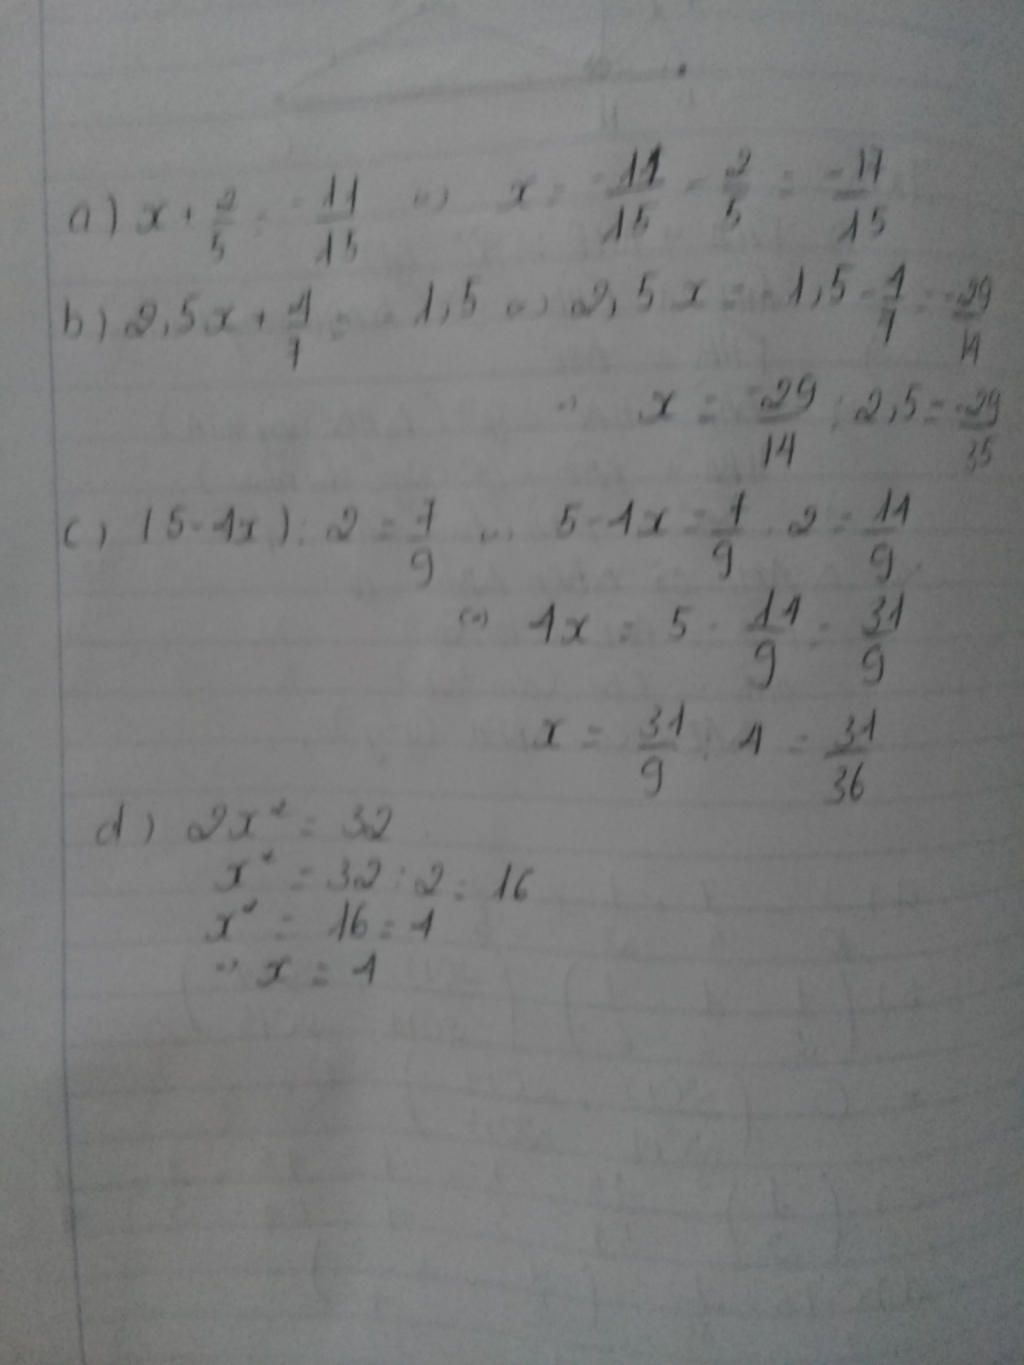 a) x + 2/5 = -11/15 => x = -11/15 - 2/5 = -17/15
b) 2,5x + 4/7 = -1,5 => 2,5x = -1,5 - 4/7 = -29/14
=> x = -29/14 : 2,5 = -29/35
c) (5-4x) : 2 = 7/9 => 5-4x = 7/9 . 2 = 14/9
=> 4x = 5 - 14/9 = 31/9
x = 31/9 : 4 = 31/36
d) 2x² = 32
x² = 32 : 2 = 16
x² = 16 = 4
=> x = 4